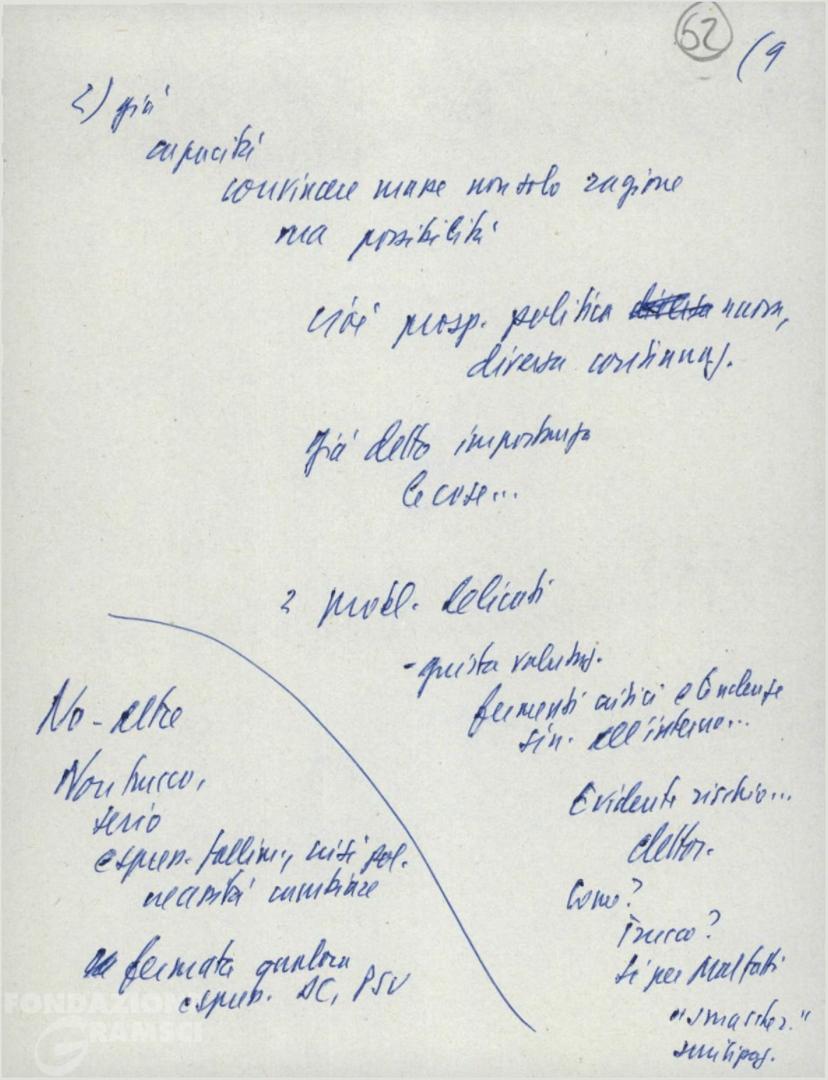 52
(9
2) già
capacità
convincere masse non solo ragione
ma possibilità
cioè prosp. politica nuova,
diversa continuaz.
già detto importanza
le cose...
2 probl. delicati
- giusta valutaz.
fermenti critici e tendenze
sin. all'interno...
Evidente rischio...
elettor.
Come?
Trucco?
Sì per Malfatti
"smascher."
No - altre
Non trucco,
serio
espress. fallim., crisi pol.
necessità cambiare
fermata qualora
espress. DC, PSU
FONDAZIONE
GRAMSCI